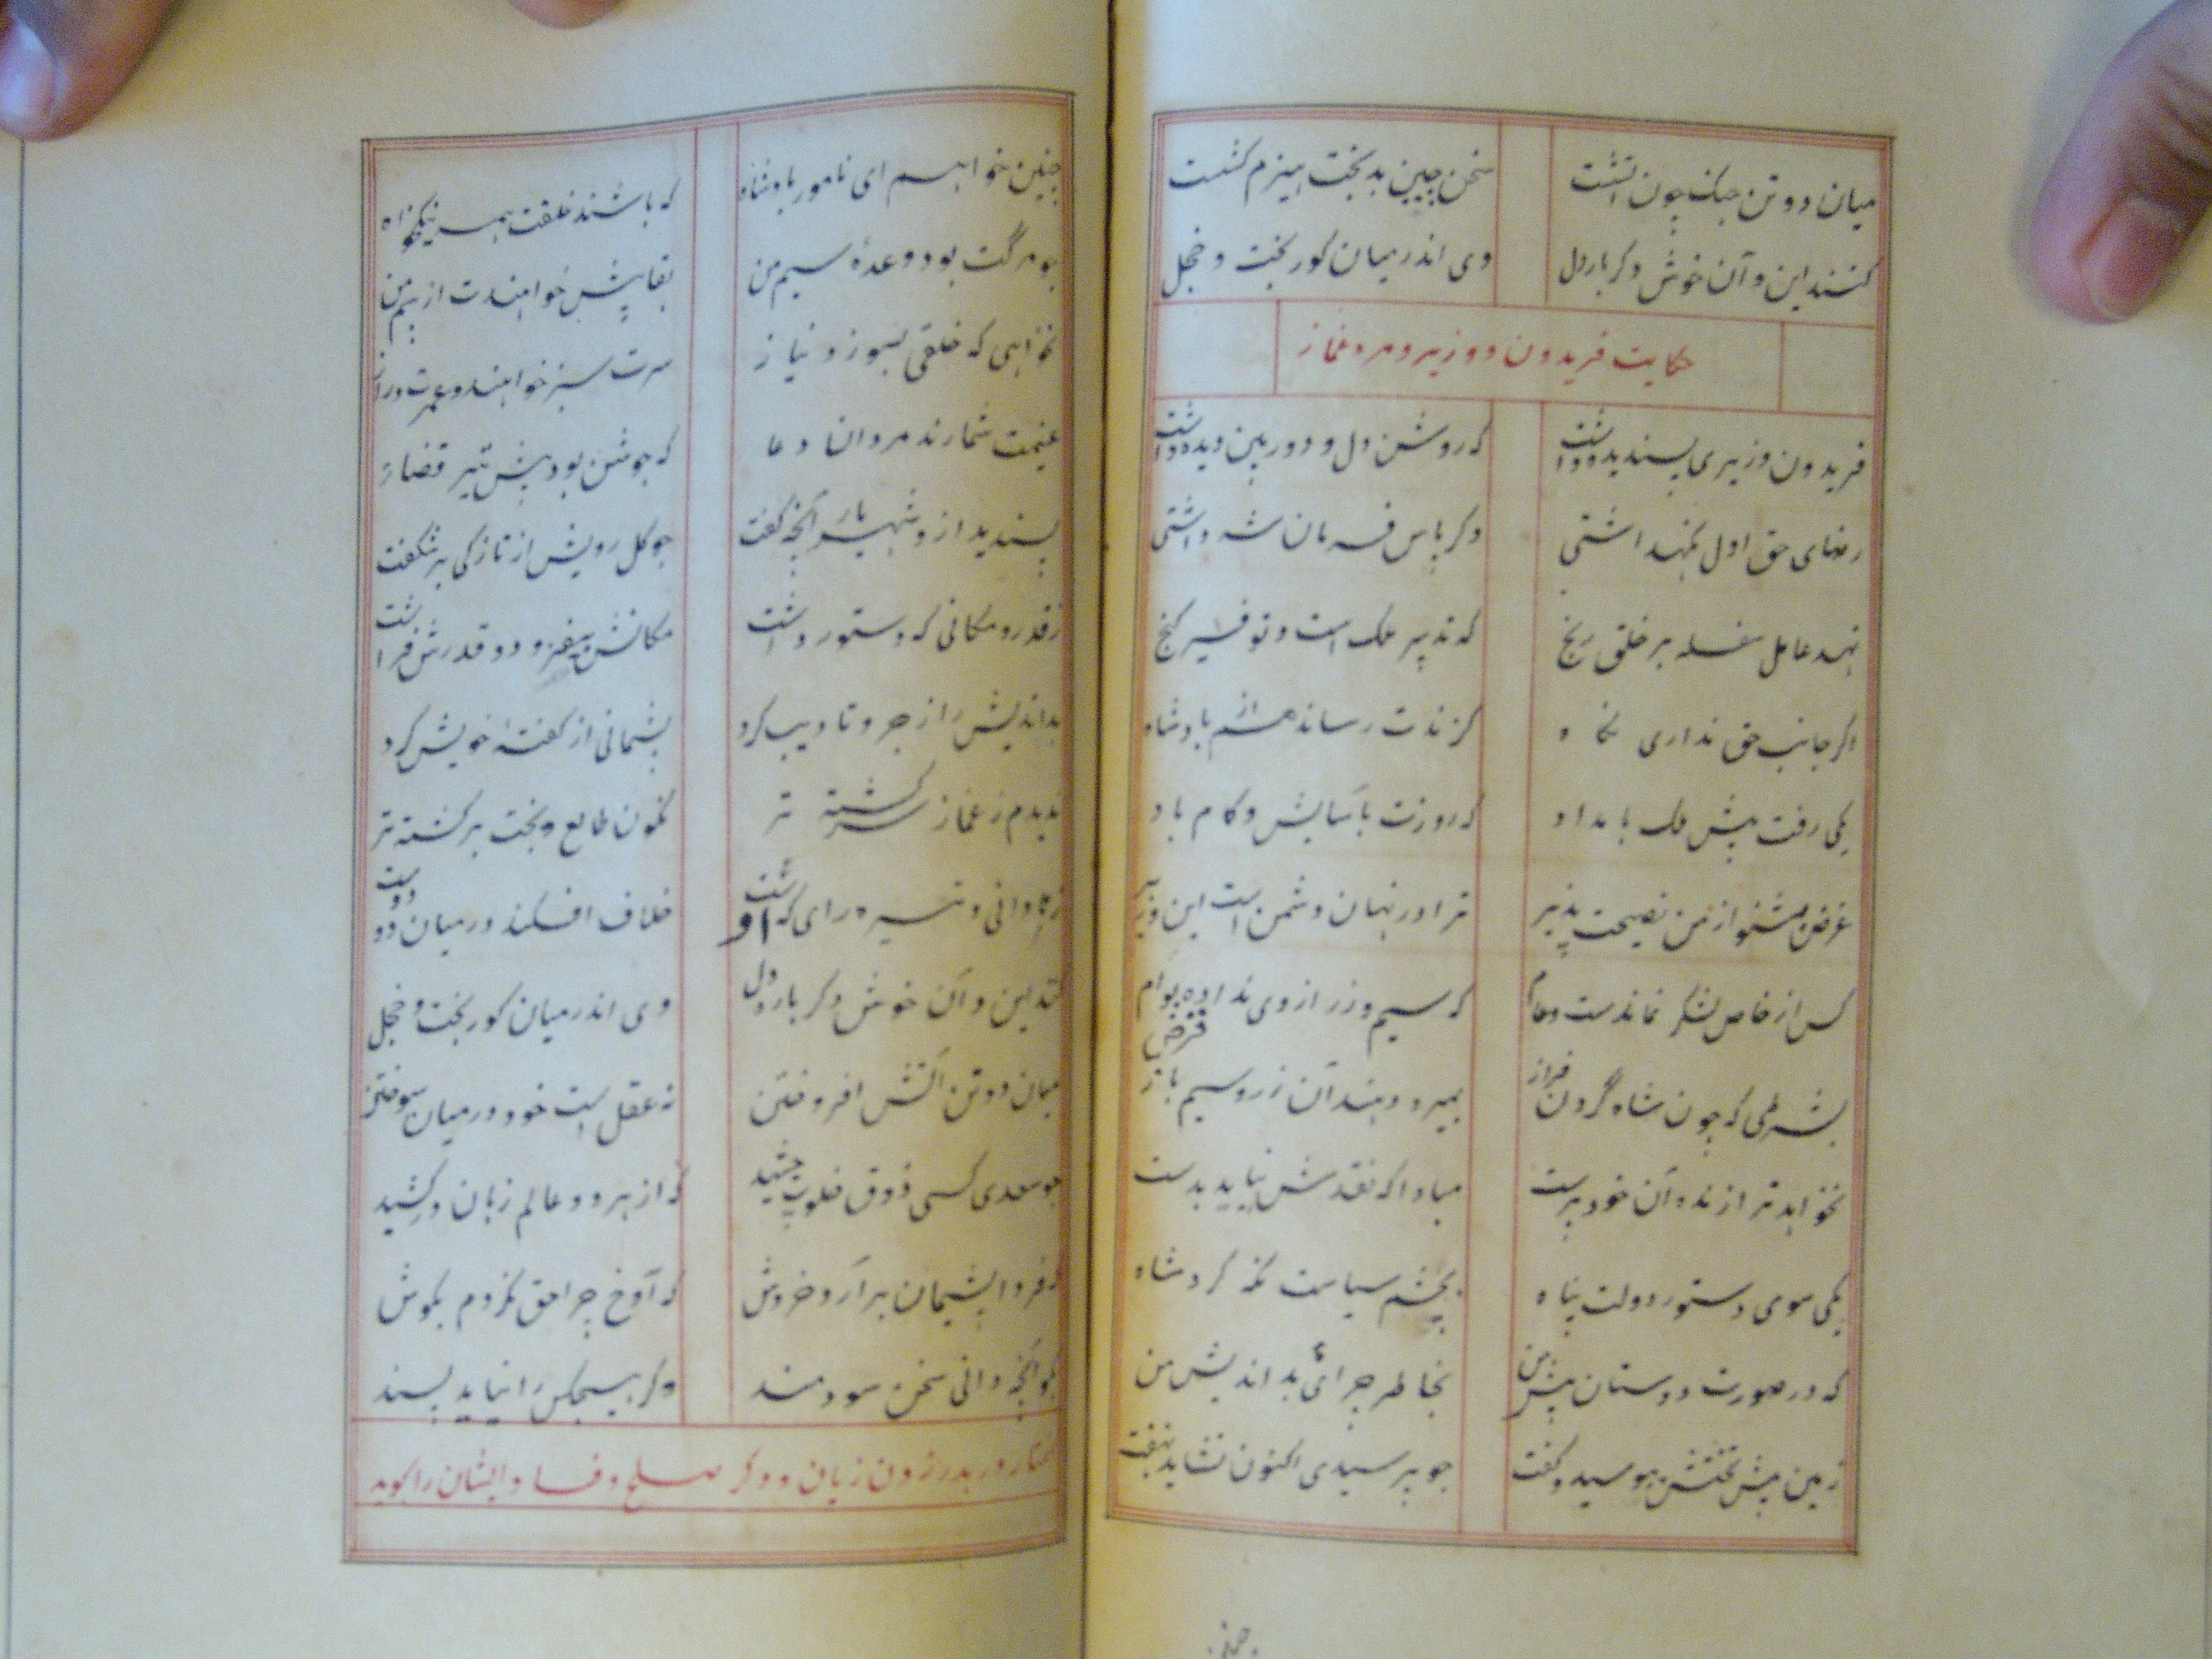 میان دو تن جنک چون آتشت سخن چین بدبخت هیزم کشست
کنند این و آن خوش دکر باره دل وی اندر میان کور بخت و خجل
حکایت فریدون و وزیر و مرد غماز
فریدون وزیری پسندیده داشت که روشن دل و دوربین دیده داشت
رضای حق اول نکهداشتی دکر پاس فرمان شه داشتی
نهد عامل سفله بر خلق رنج که تدبیر ملک است و توفیر کنج
اکر جانب حق نداری نکاه کزندت رساند هم از پادشاه
یکی رفت پیش ملک بامداد که روزت بآسایش و کام باد
غرض مشنو از من نصیحت پذیر ترا در نهان دشمن است این وزیر
کس از خاص لشکر نماندست و عام که سیم و زر از وی ندارد بوام
قرض
بشرطی که چون شاه گردن فراز بمیرد دهند آن زر و سیم باز
نخواهد ترا زنده آن خودپرست مبادا که نقدش نیاید بدست
یکی سوی دستور دولت پناه بچشم سیاست نکه کرد شاه
که در صورت دوستان پیش من بخاطر چرائی بداندیش من
زمین پیش تختش ببوسید و کفت چو پرسیدی اکنون نشاید نهفت
چنین خواهم ای نامور پادشاه که باشند خلقت همه نیکخواه
چو مرگت بود وعدهٔ سیم من بقا بیش خواهندت از بیم من
نخواهی که خلقی بسوز و نیاز سرت سبز خواهند و عمرت دراز
غنیمت شمارند مردان دعا که جوشن بود پیش تیر قضا
پسندید ازو شهریار آنچه کفت چو کل رویش از تازکی برشکفت
ز قدر و مکانی که دستور داشت مکانش بیفزود و قدرش فراشت
بداندیش را زجر و تادیب کرد پشیمانی از کفتهٔ خویش کرد
ندیدم ز غماز سرکشته تر نکون طالع و بخت برکشته تر
ز نادانی و تیره رای که اوست خلاف افکند در میان دو دوست
کنند این و آن خوش دکر باره دل وی اندر میان کور بخت و خجل
میان دو تن آتش افروختن نه عقل است خود در میان سوختن
چو سعدی کسی ذوق خلوت چشید که از هر دو عالم زبان درکشید
که فردا پشیمان برآرد خروش که آوخ چرا حق نکردم بکوش
بکو آنچه دانی سخن سودمند وکر هیچکس را نیاید پسند
زیان و ذکر صلح و فساد ایشان را کوید